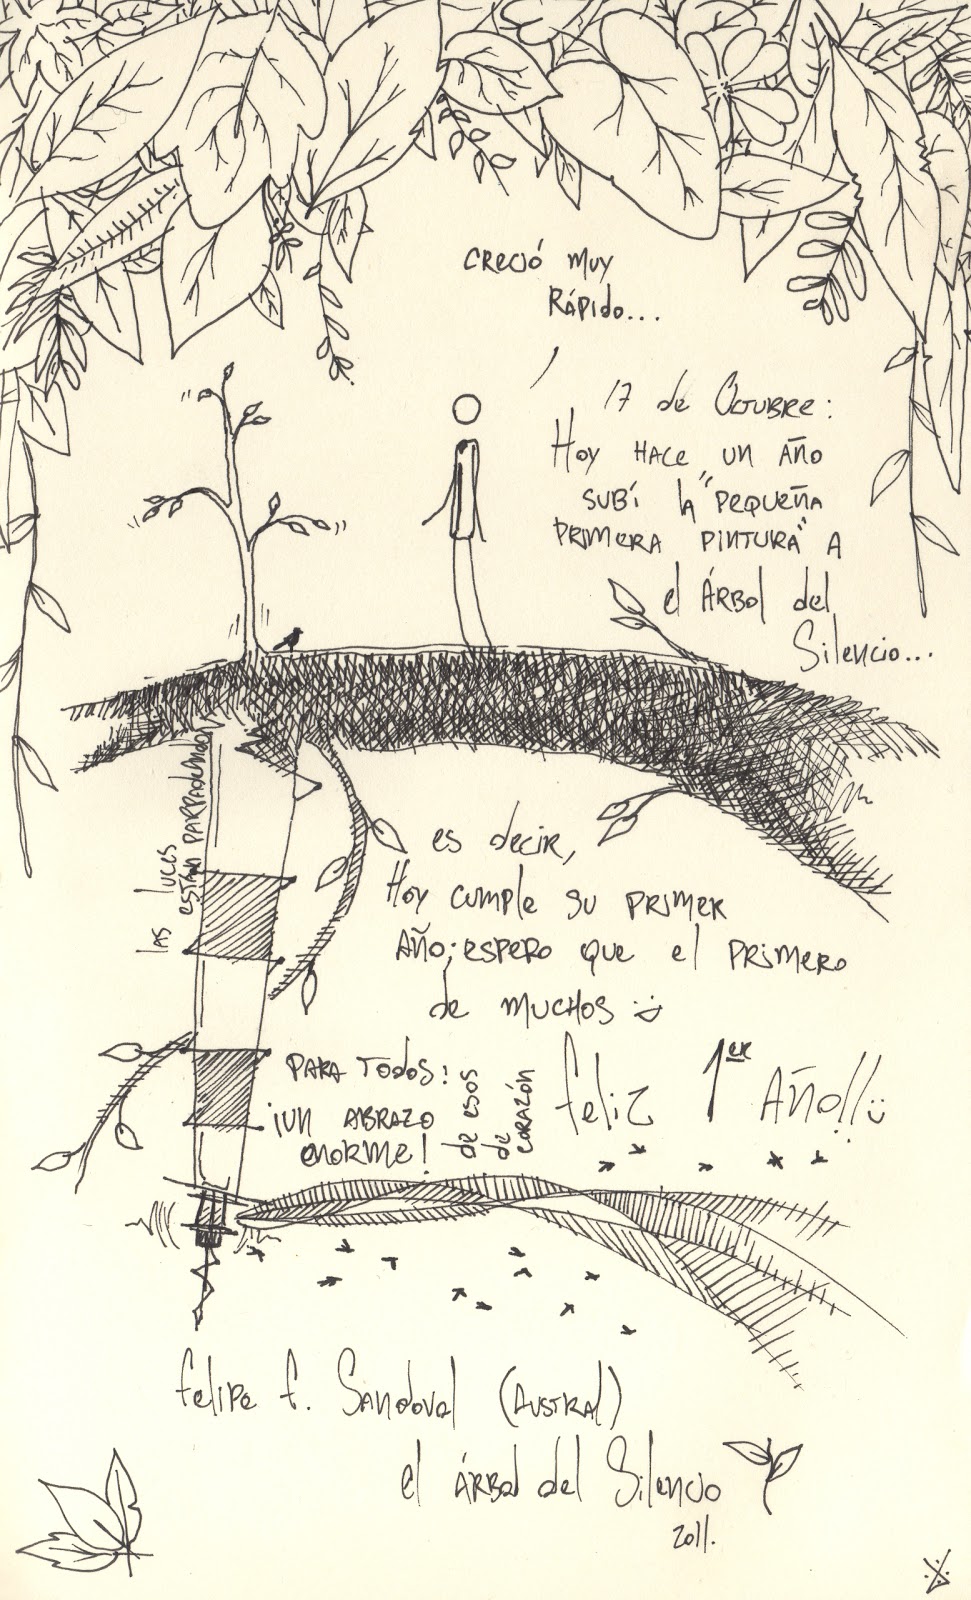 CRECIÓ MUY
RÁPIDO...
17 de OCTUBRE:
HOY HACE UN AÑO
SUBÍ lA "PEQUEÑA
PRIMERA PINTURA" A
el ÁRBOl del
Silencio...
LAS LUCES
ESTÁN PARPADEANDO
es decir,
HOY CUMPLE SU PRIMER
AÑO; ESPERO QUE el PRIMERO
de MUCHOS :)
PARA TODOS!
¡UN ABRAZO
ENORME!
de esos
de
CORAZÓN
feliz 1ER AÑO!! :)
felipe f. SANdovAl (AUSTRAl)
el ÁRBol del Silencio
2011.